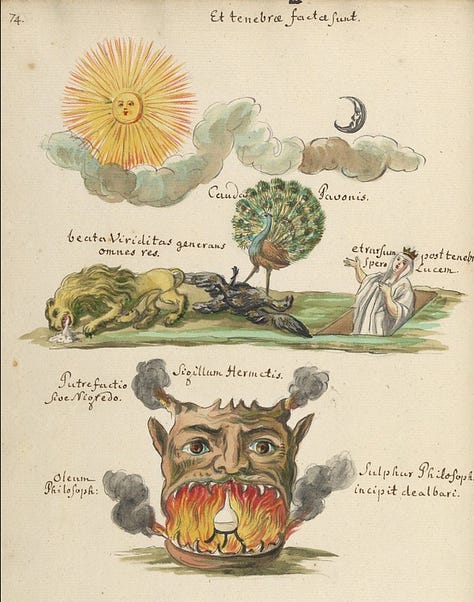 74.
Et tenebræ factæ sunt.
Cauda Pavonis.
beata Viriditas generans
omnes res.
et rursum post tenebr
spero Lucem.
Sigillum Hermetis.
Putrefactio
sive Nigredo.
Oleum
Philosoph:
Sulphur Philosoph
incipit dealbari.